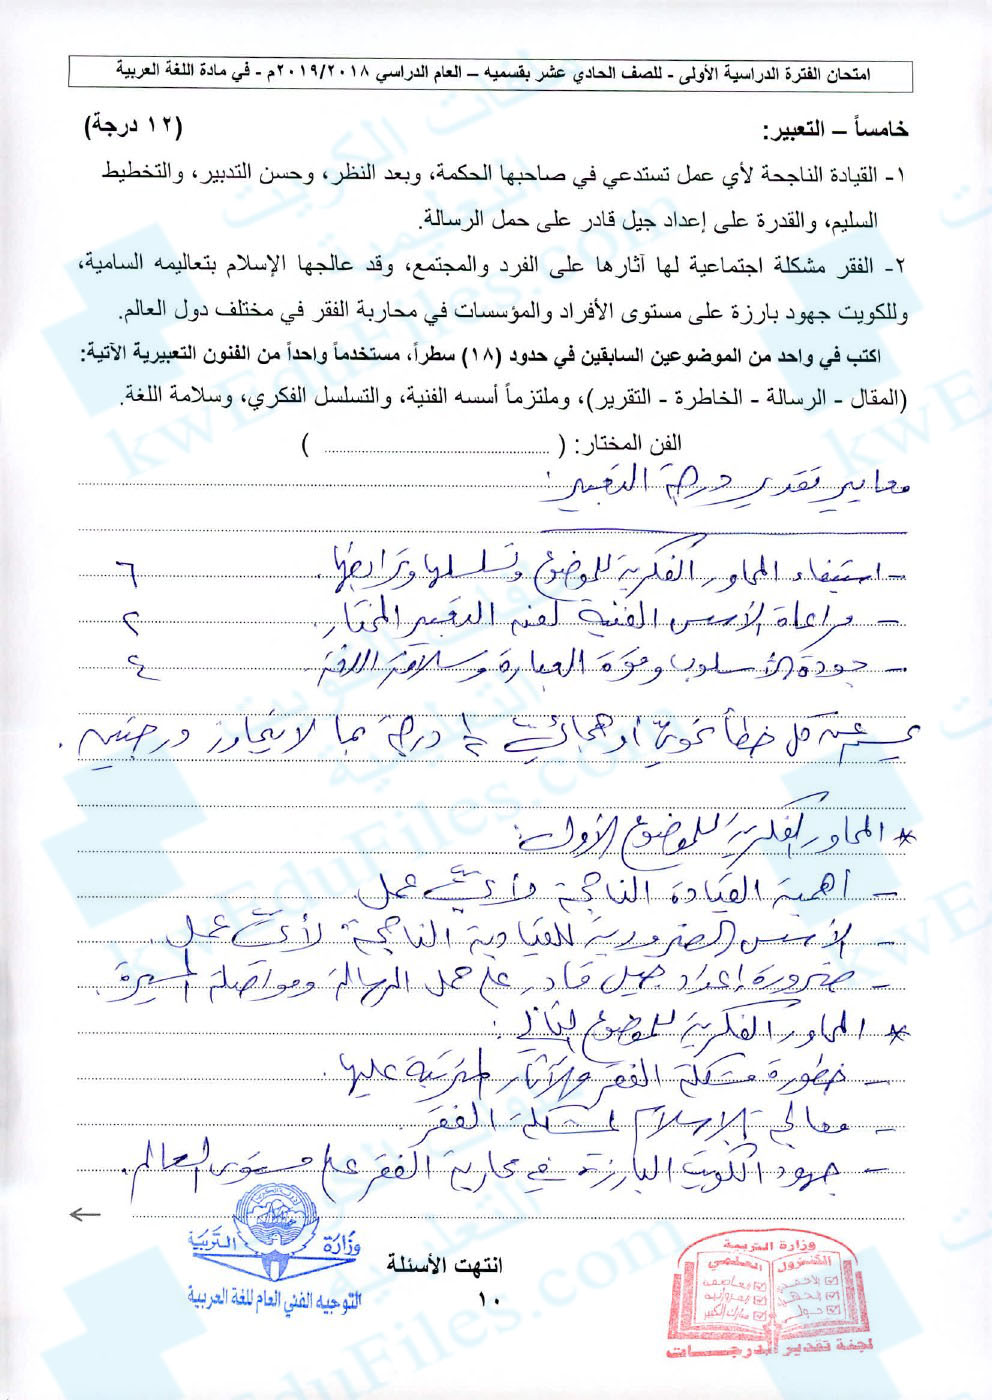 امتحان الفترة الدراسية الأولى - للصف الحادي عشر بقسميه – العام الدراسي ٢٠١٩/٢٠١٨م - في مادة اللغة العربية
خامساً – التعبير: (١٢ درجة)
١- القيادة الناجحة لأي عمل تستدعي في صاحبها الحكمة، وبعد النظر، وحسن التدبير، والتخطيط
السليم، والقدرة على إعداد جيل قادر على حمل الرسالة.
٢- الفقر مشكلة اجتماعية لها آثارها على الفرد والمجتمع، وقد عالجها الإسلام بتعاليمه السامية،
وللكويت جهود بارزة على مستوى الأفراد والمؤسسات في محاربة الفقر في مختلف دول العالم.
اكتب في واحد من الموضوعين السابقين في حدود (١٨) سطراً، مستخدماً واحداً من الفنون التعبيرية الآتية:
(المقال - الرسالة - الخاطرة - التقرير)، وملتزماً أسسه الفنية، والتسلسل الفكري، وسلامة اللغة.
الفن المختار: ( ........................................ )
معايير تقدير درجة التعبير:
- استيفاء المحاور الفكرية للموضوع وتسلسلها وترابطها. ٦
- مراعاة الأسس الفنية لفن التعبير المختار. ٢
- جودة الأسلوب وقوة العبارة وسلامة اللغة. ٤
يحسم عن كل خطأ نحويّ أو هجائيّ ½ درجة بما لا يتجاوز درجتين.
* المحاور الفكرية للموضوع الأول:
- أهمية القيادة الناجحة لأيّ عمل
- الأسس الضرورية للقيادة الناجحة لأيّ عمل.
- ضرورة إعداد جيل قادر على حمل الرسالة ومواصلة المسيرة.
* المحاور الفكرية للموضوع الثاني:
- خطورة مشكلة الفقر والآثار المترتبة عليها.
- معالجة الإسلام لمشكلة الفقر.
- جهود الكويت البارزة في محاربة الفقر على مستوى العالم.
←
انتهت الأسئلة
١٠
دولة الكويت
وزارة التربية
التوجيه الفني العام للغة العربية
وزارة التربية
الكنترول العلمي
لجنة تقدير الدرجات
ملفات الكويت التعليمية
kwEduFiles.com